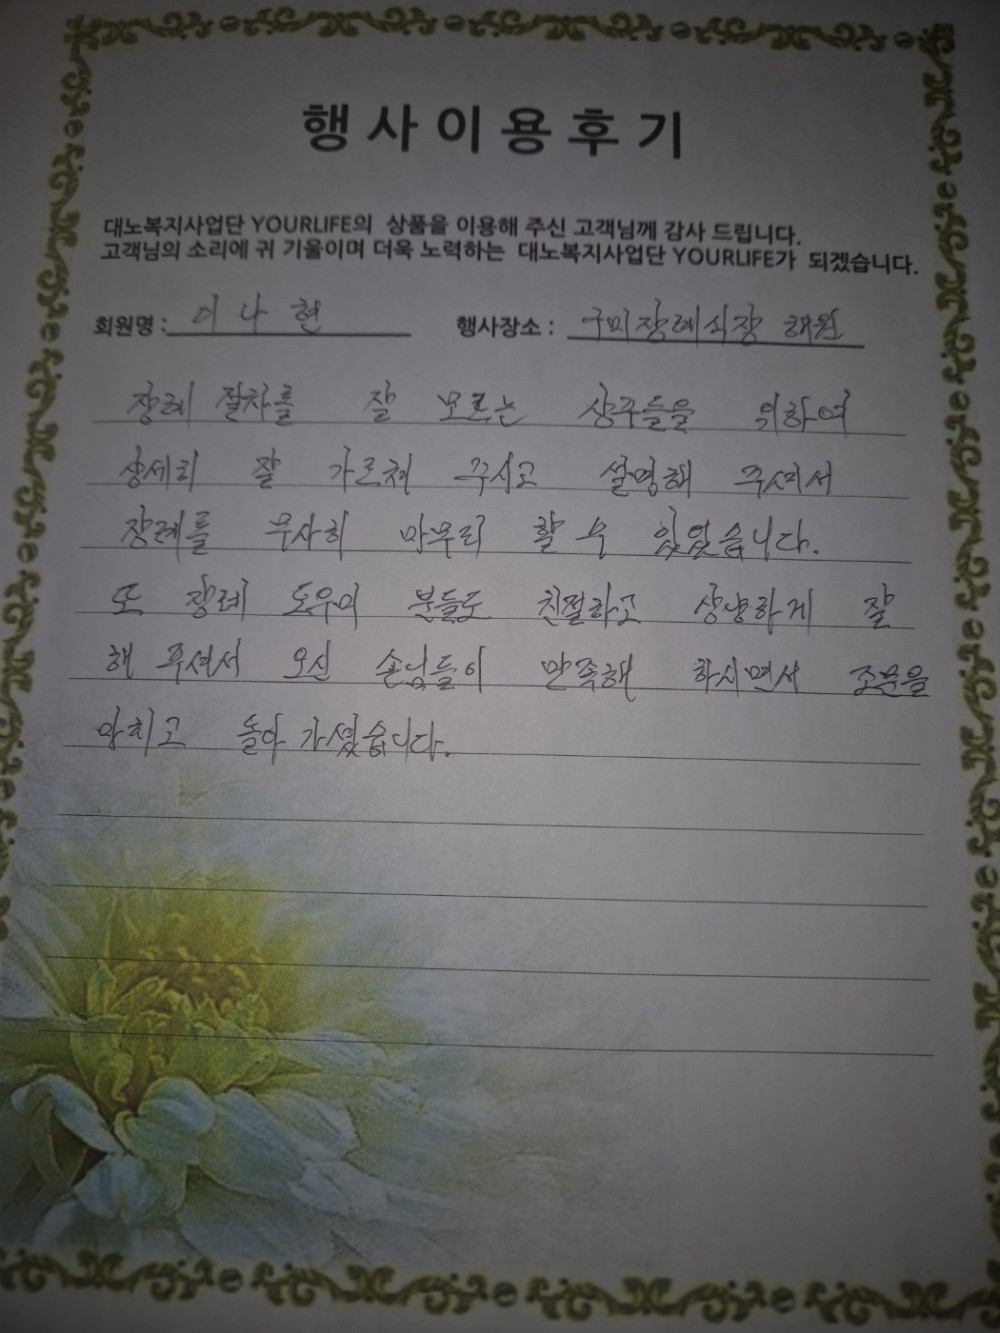 행사이용후기
대노복지사업단 YOURLIFE의 상품을 이용해 주신 고객님께 감사 드립니다.
고객님의 소리에 귀 기울이며 더욱 노력하는 대노복지사업단 YOURLIFE가 되겠습니다.
회원명 : 이나현 행사장소 : 구미장례식장 해원
장례 절차를 잘 모르는 상주들을 위하여
상세히 잘 가르쳐 주시고 설명해 주셔서
장례를 무사히 마무리 할 수 있었습니다.
또 장례 도우미 분들도 친절하고 상냥하게 잘
해 주셔서 오신 손님들이 만족해 하시면서 조문을
마치고 돌아 가셨습니다.